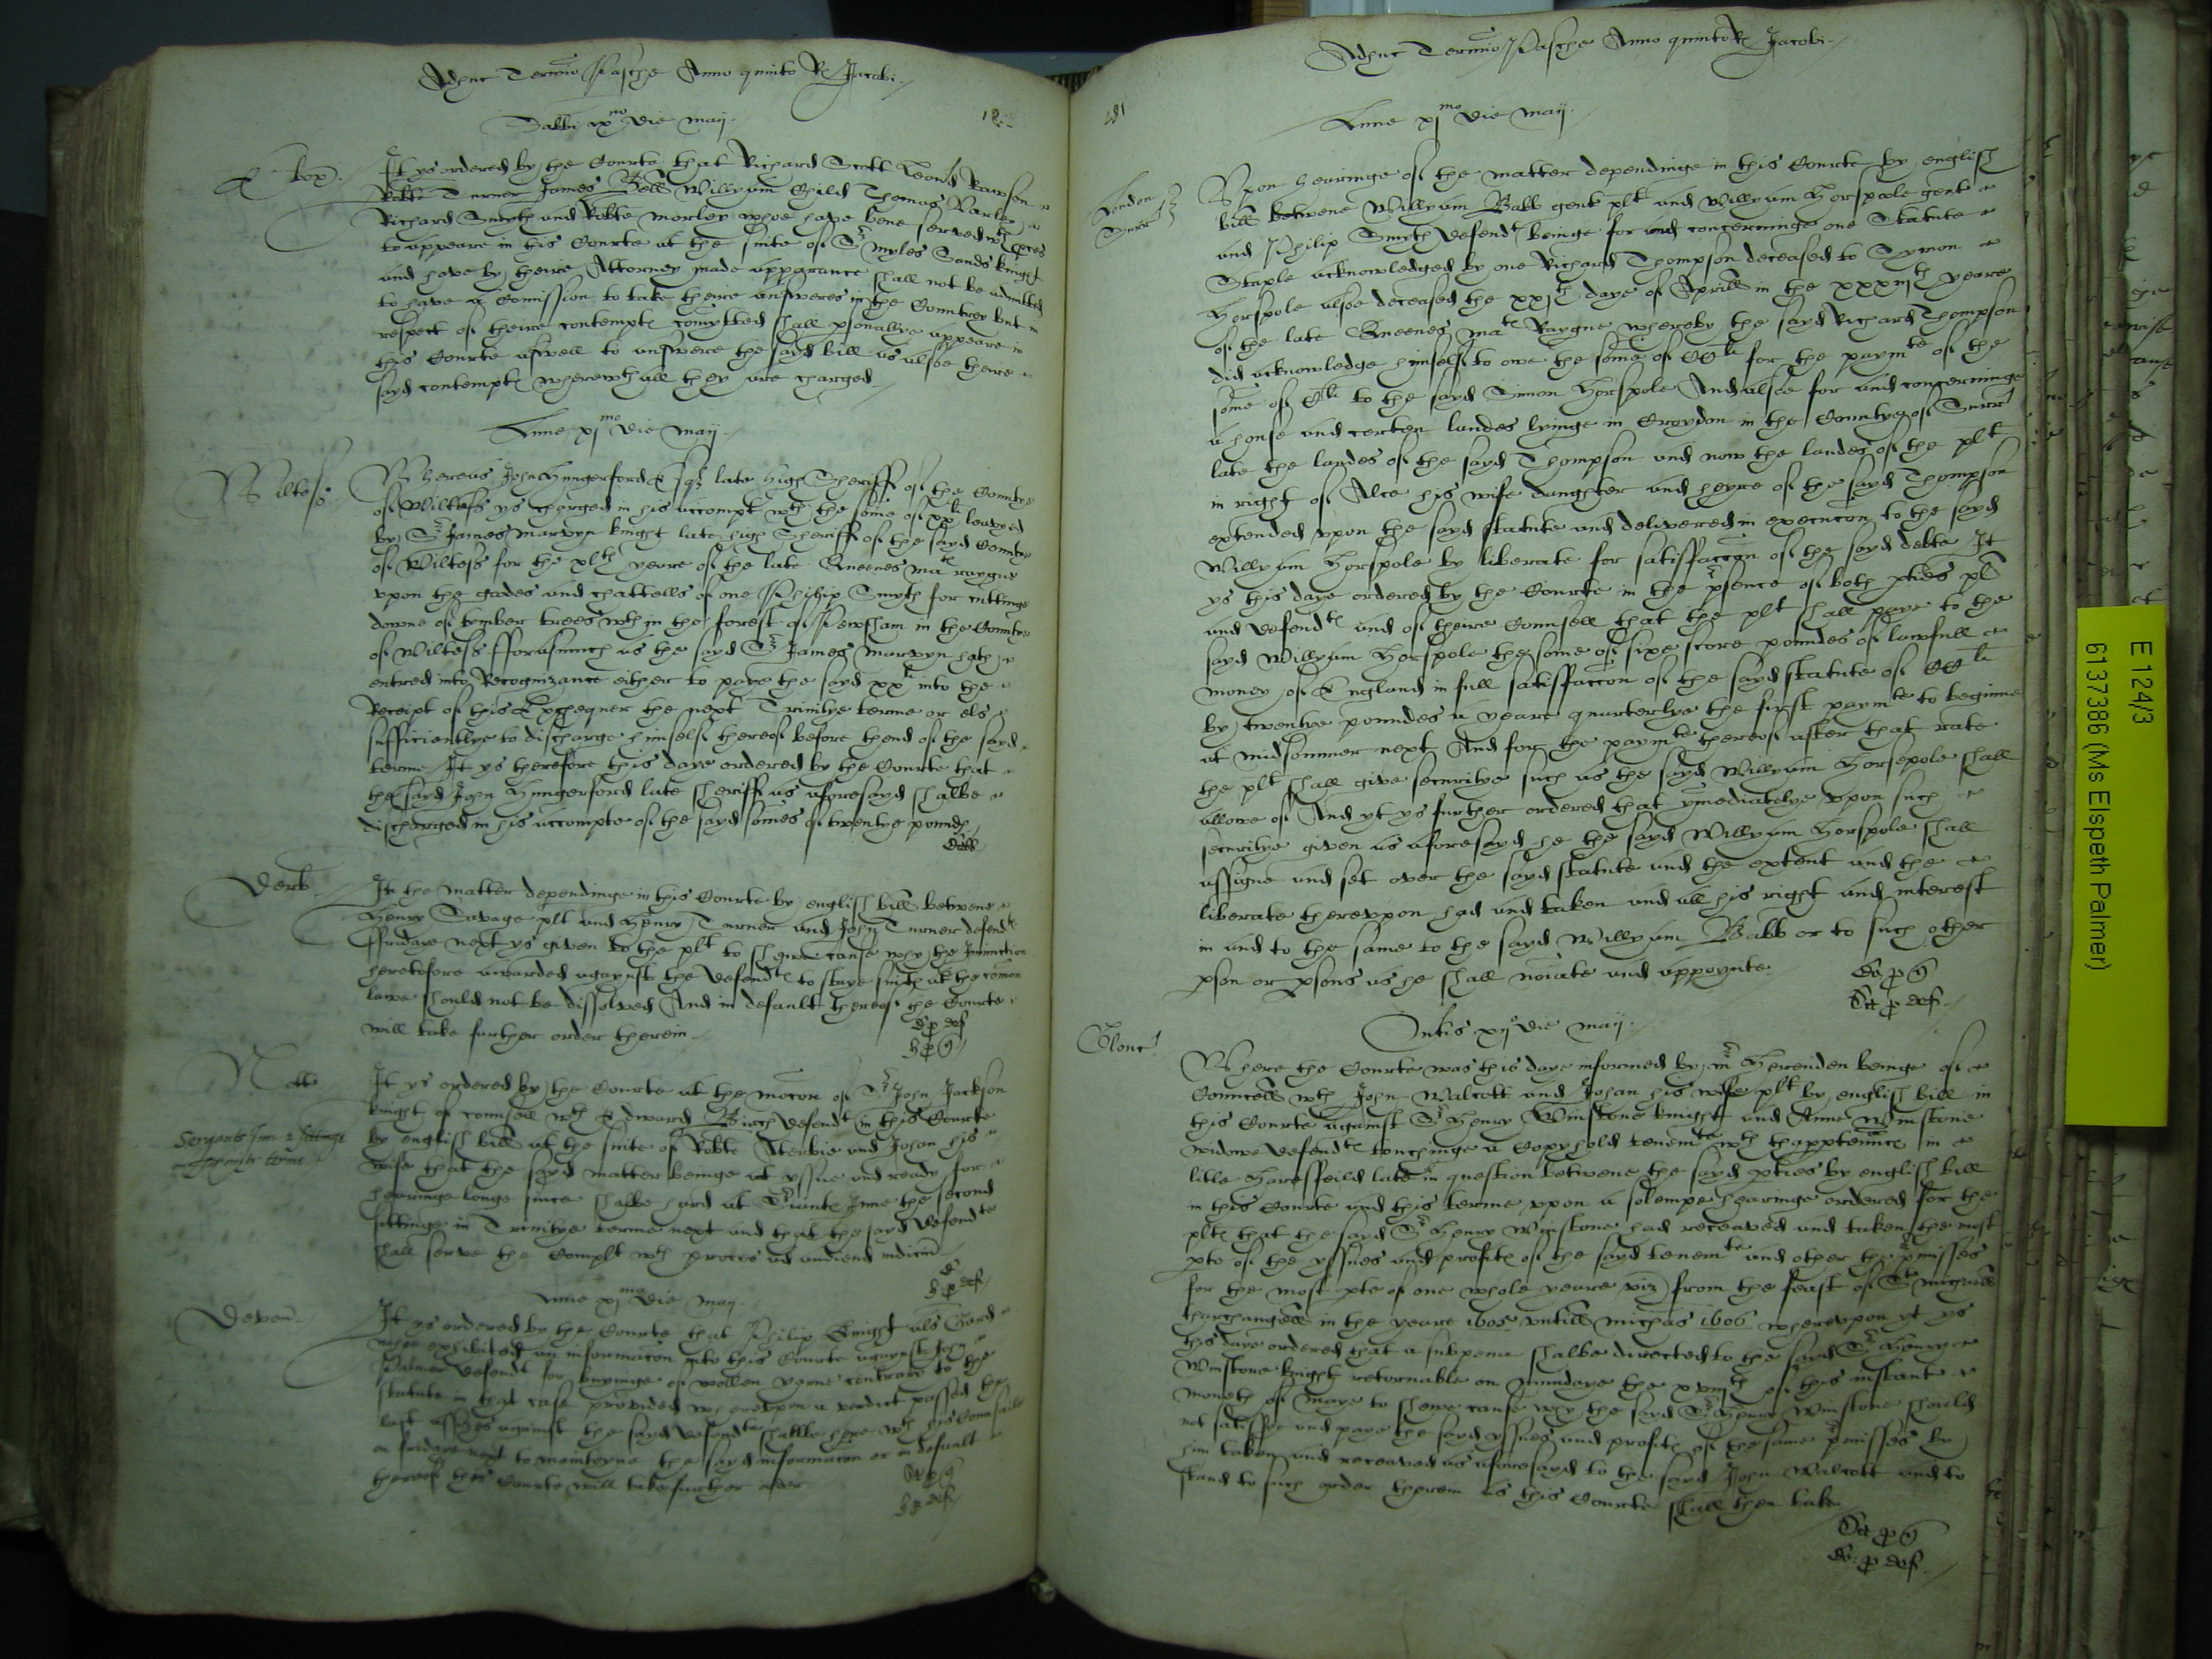 Adhuc Termino Pasche Anno quinto R Jacobi
Sabbi ix no die maij
Ebor
It ys ordered by the Courte that Richard Scott Leond Rawson
Robte Turner James Bell Willyam Child Thomas
Richard Smyth and Robte Morley whoe have bene served wth
to appeare in this Courte at the suite of Sr Myles Sands knight
and have by theire Attorney made apparance shall not be admitted
to have a Comission to take theire answeres in the Countrey but in
respect of theire contempte comytted shall psonallye appeare in
this Courte aswell to answere the sayd bill as alsoe theire
sayd contempte wherewth all they are charged
Lune xj mo die maij
Wiltes
Whereas John Hungerford Esqr late high Sheriff of the Countye
of Wiltes ys charged in his accompt wth the some of xx li leavyed
by Sr James Marvyn knight late high Sheriff of the sayd Countye
of Wiltes for the xl th yeare of the late Queenes mats raygne
upon the goodes and chattells of one Philip Smyth for cuttinge
downe of tember trees wthin the forest of Pewsham in the Countye
of Wiltes fforasmuch as the sayd Sr James Marvyn hath
entred into Recognizance either to paye the sayd xx li into the
Receipt of his Exchequer the next Trinitye terme or els
sufficientlye to discharge himself thereof before thend of the sayd
terme It ys therefore this daye ordered by the Courte that
the sayd John Hungerford late sheriff as aforesayd shalbe
discharged in his accompte of the sayd somes of twentye pounds
Derb
In the matter dependinge in this Courte by english bill betwene
Henry Savage plt and Henry Turner and John Turner defendts
ffridaye next ys given to the plt to shewe cause why the Iniunction
heretofore awarded agaynst the defendts to staye suite at the comon
lawe should not be dissolved And in default thereof the Courte
will take further order therein
Nott
It ys ordered by the Courte at the mocon of Sr John Jackson
knight of counsell wth Edward Birch defendt in this Courte
by english bill at the suite of Robte Atenbie and Johan his
wife that the sayd matter beinge at yssue and ready for
hearinge longe since shalbe hard at Srianntes Inne the second
sittinge in Trinitye terme next and that the sayd defendts
shall serve the Complt wth proces ad audiend iudiciu
Sergants Inn 2 sittinge
in Trinitie terme
Lune xj mo die maij
Devon
It ys ordered by the Courte that Philip Knight als
whoe exhibited an informacon into this Courte against John
Palmer defendt for buyinge of wollen yarne contrary to the
statute in that case provided whereupon a verdict passed the
last assizes against the sayd defendt shalbe here wth his Counsaile
on fridaye next to mainteyne the sayd informacon or in default
thereof this Courte will take further order
Adhuc Termino Pasche Anno quinto R Jacobi
181
Lune xj mo die maij
London
Surr
Upon hearinge of the matter dependinge in this Courte by english
bill betwene Willyam Babb gent plt and Willyam Horspoole gent
and Philip Smyth defendts beinge for and concerninge one Statute
Staple acknowledged by one Richard Thompson deceased to Symon
Horspole alsoe deceased the xxj th daye of Aprill in the yeare
of the late Queenes mats Raygne whereby the sayd Richard Thompson
did acknowledge himself to owe the some of CC li for the paymte of the
some of C li to the sayd Simon Horspole And alsoe for and concerninge
a house and certen landes lyinge in Croydon in the Countye of Surr
late the landes of the sayd Thompson and now the landes of the plt
in right of Alce his wife daughter and heyre of the sayd Thompson
extended upon the sayd statute and delivered in execucon to the sayd
Willyam Horspole by liberate for satisfaccon of the sayd debte It
ys this daye ordered by the Courte in the psence of both pties plt
and defendts and of theire Counsell that the plt shall paye to the
sayd Willyam Horspole the some of sixe score poundes of lawfull
money of England in full satisfaccon of the sayd statute of CC li
by twentye poundes a yeare quarterlye the first paymte to beginne
at midsommer next And for the paymte thereof after that rate
the plt shall give securitye such as the sayd Willyam Horsepole shall
allowe of And yt ys further ordered that ymediatelye upon such
securitye given as aforesayd he the sayd Willyam Horspole shall
assigne and set over the sayd statute and the extent and the
liberate thereupon had and taken and all his right and interest
in and to the same to the sayd Willyam Babb or to such other
pson or psons as he shall noiate and appoynte
Martis xij o die maij
Glouc
Where the Courte was this daye informed by mr Herenden beinge of
Councell wth John Walcott and Johan his wife plts by english bill in
this Courte against Sr Henry Winstone knight and Anne Winstone
widowe defendts touchinge a Copyhold tenemte wth thapptennce in
litle Haresfeild late in question betwene the sayd pties by english bill
in this Courte and this terme upon a solempe hearinge ordered for the
plts that the sayd Sr Henry Winstone had receaved and taken the most
pte of the yssues and profite of the sayd tenemte and other the pmisses
for the most pte of one whole yeare viz from the feast of St Michaell
tharchangell in the yeare 1605 untill michas 1606 whereupon yt ys
this daye ordered that a subpena shalbe directed to the sayd Sr Henry
Winstone knight retornable on mundaye the xviij th of this instant
moneth of maye to shewe cause why the sayd Sr Henry Winstone should
not satisfie and paye the sayd yssues and profits of the same pmisses by
him taken and receaved as aforesayd to the sayd John Walcott and to
stand to such order therein as this Courte shall then take
E 124/3
6137386 (Ms Elspeth Palmer)